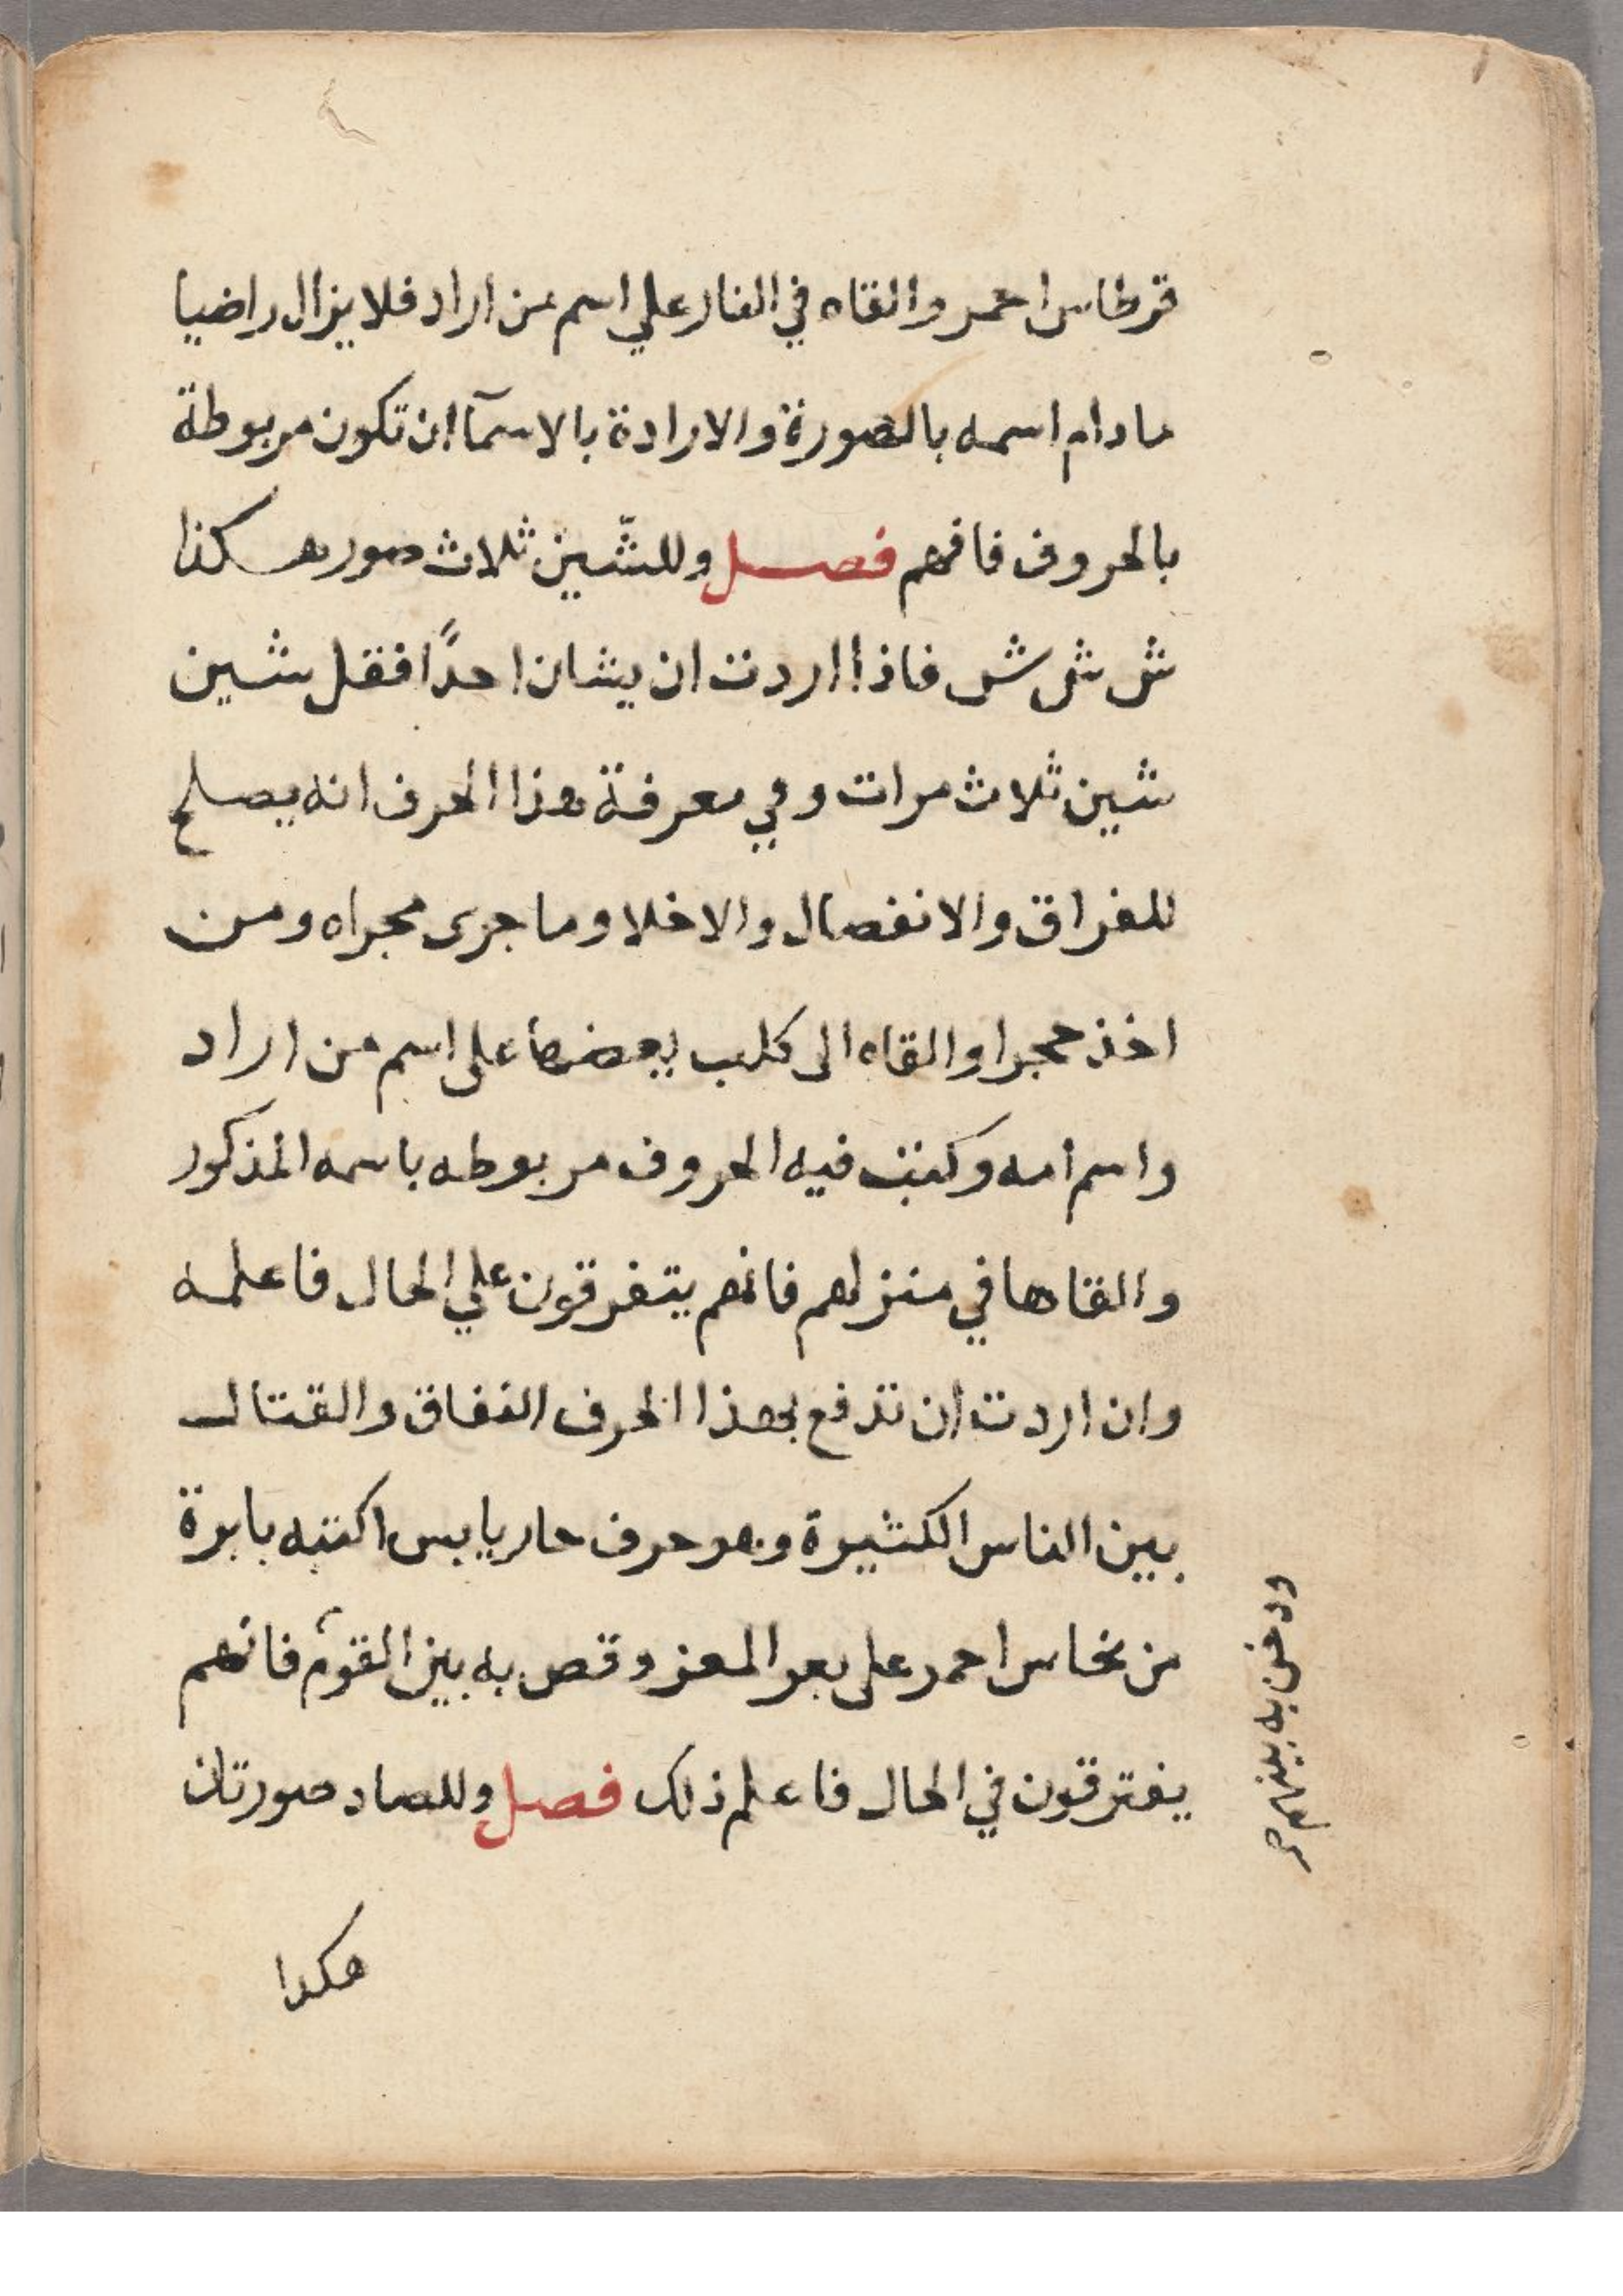 قرطاس احمر والقاه في النار علي اسم من اراد فلا يزال راضيا
مادام اسمه بالصورة والارادة بالاسمآ ان تكون مربوطة
بالحروف فافهم فصل وللشّين ثلاث صور هكذا
ش ش ش فاذا اردت ان يشان احدًا فقل شين
شين ثلاث مرات وفي معرفة هذا الحرف انه يصلح
للفراق والانفصال والاخلا وما جرى مجراه ومن
اخذ حجرا والقاه الى كلب يعضها على اسم من اراد
واسم امه وكتبت فيه الحروف مربوطه باسمه المذكور
والقاها في منزلهم فانهم يتفرقون علي الحال فاعلمه
وان اردت ان تدفع بهذا الحرف النفاق والقتال
بين الناس الكثيرة وهو حرف حار يابس اكتبه بابرة
من نحاس احمر على بعر المعز وقص به بين القوم فانهم
يفترقون في الحال فاعلم ذلك فصل وللصاد صورتان
هكذا
ودخن به بينهم